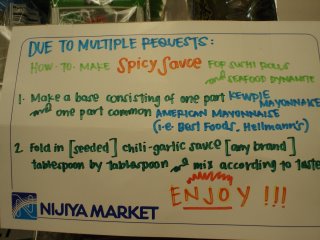 DUE TO MULTIPLE REQUESTS:
HOW-TO-MAKE SPICY SAUCE FOR SUSHI ROLLS and SEAFOOD DYNAMITE
1. Make a base consisting of one part KEWPIE MAYONNAISE
and one part common AMERICAN MAYONNAISE
(i.e. Best Foods, Hellmann's)
2. Fold in [seeded] chili-garlic sauce [any brand]
tablespoon by tablespoon and mix according to taste
ENJOY !!!
NIJIYA MARKET